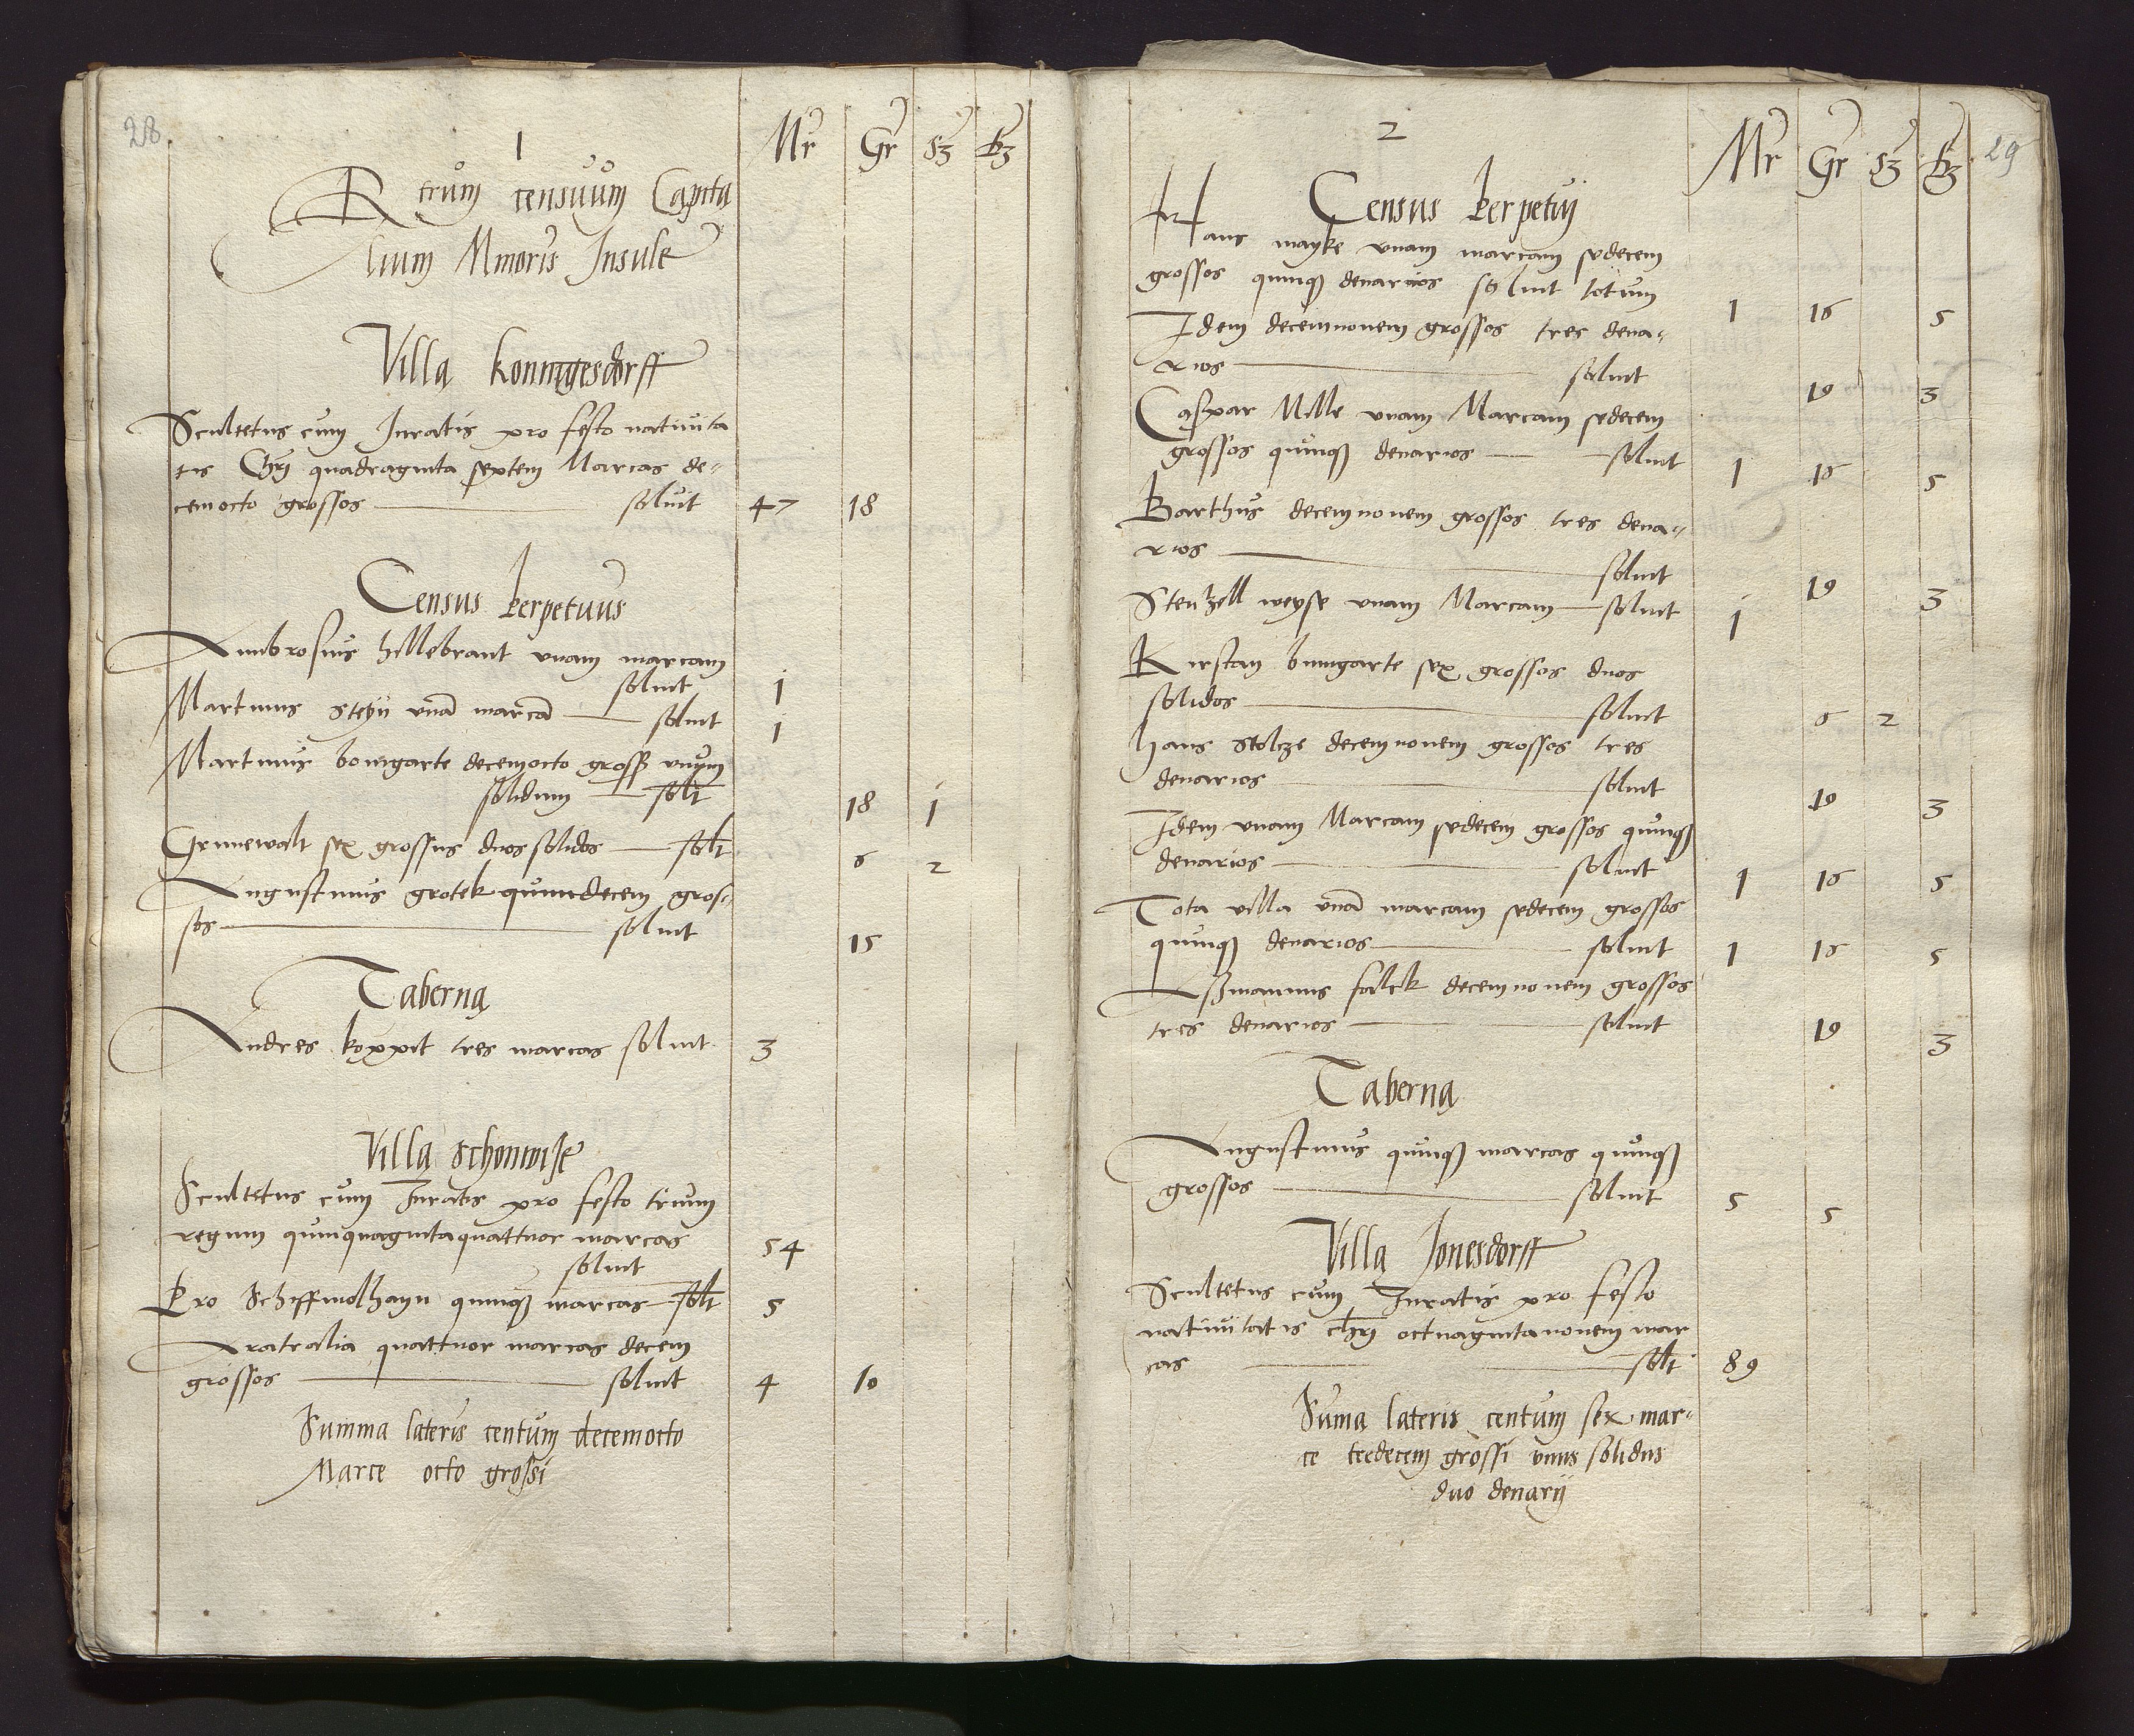 28
1
Mr Gr S₃ ₰
Rtrum censuum Capita
lium Minoris Insule
Villa konnigesdorff
Scultetus cum Juratis pro festo nativita
tis Chri quadraginta septem Marcas de=
cemocto grossos — soluit 47 18
Census perpetuus
Ambrosius hillebrant vnam marcam
soluit 1
Martinus steyn vnā marcā — soluit 1
Martinus bomgarte decemocto gross vnum
solidum — solt 18 1
Grunewalt sex grossos duos solidos — solt 6 2
Augustinus grotek quindecem gros=
sos — soluit 15
Taberna
Andres koppit tres marcas soluit 3
Villa Schonwise
Scultetus cum Juratis pro festo trium
regum quinquagintaquattuor marcas 54
soluit
Pro Schiffwolhayn quinque marcas solt 5
Aratralia quattuor marcas decem
grossos — soluit 4 10
Summa lateris centum decemocto
Marce octo grossi
2
Mr Gr S₃ ₰ 29
Census perpetuij
Hans mayke vnam marcam sedecem
grossos quinque denarios soluit totum 1 16 5
Idem decemnonem grossos tres dena=
rios — soluit 19 3
Caspar Mille vnam Marcam sedecem
grossos quinque denarios — soluit 1 16 5
Barthus decemnonem grossos tres dena=
rios — soluit 19 3
Stentzell weyse vnam Marcam — soluit 1
Kirstan bumgarte sex grossos duos
solidos — soluit 6 2
hans Stolcze decemnonem grossos tres
denarios — soluit 19 3
Idem vnam Marcam sedecem grossos quinque
denarios — soluit 1 16 5
Tota villa vnā marcam sedecem grossos
quinque denarios — soluit 1 16 5
Aßmannus falck decemnonem grossos
tres denarios — soluit 19 3
Taberna
Augustinus quinque marcas quinque
grossos — soluit 5 5
Villa Jonesdorff
Scultetus cum Juratis pro festo
nativitatis Chri octuagintanonem mar
cas — solt 89
Suma lateris centum sex mar=
ce tredecem grossi vnus solidus
duo denarij